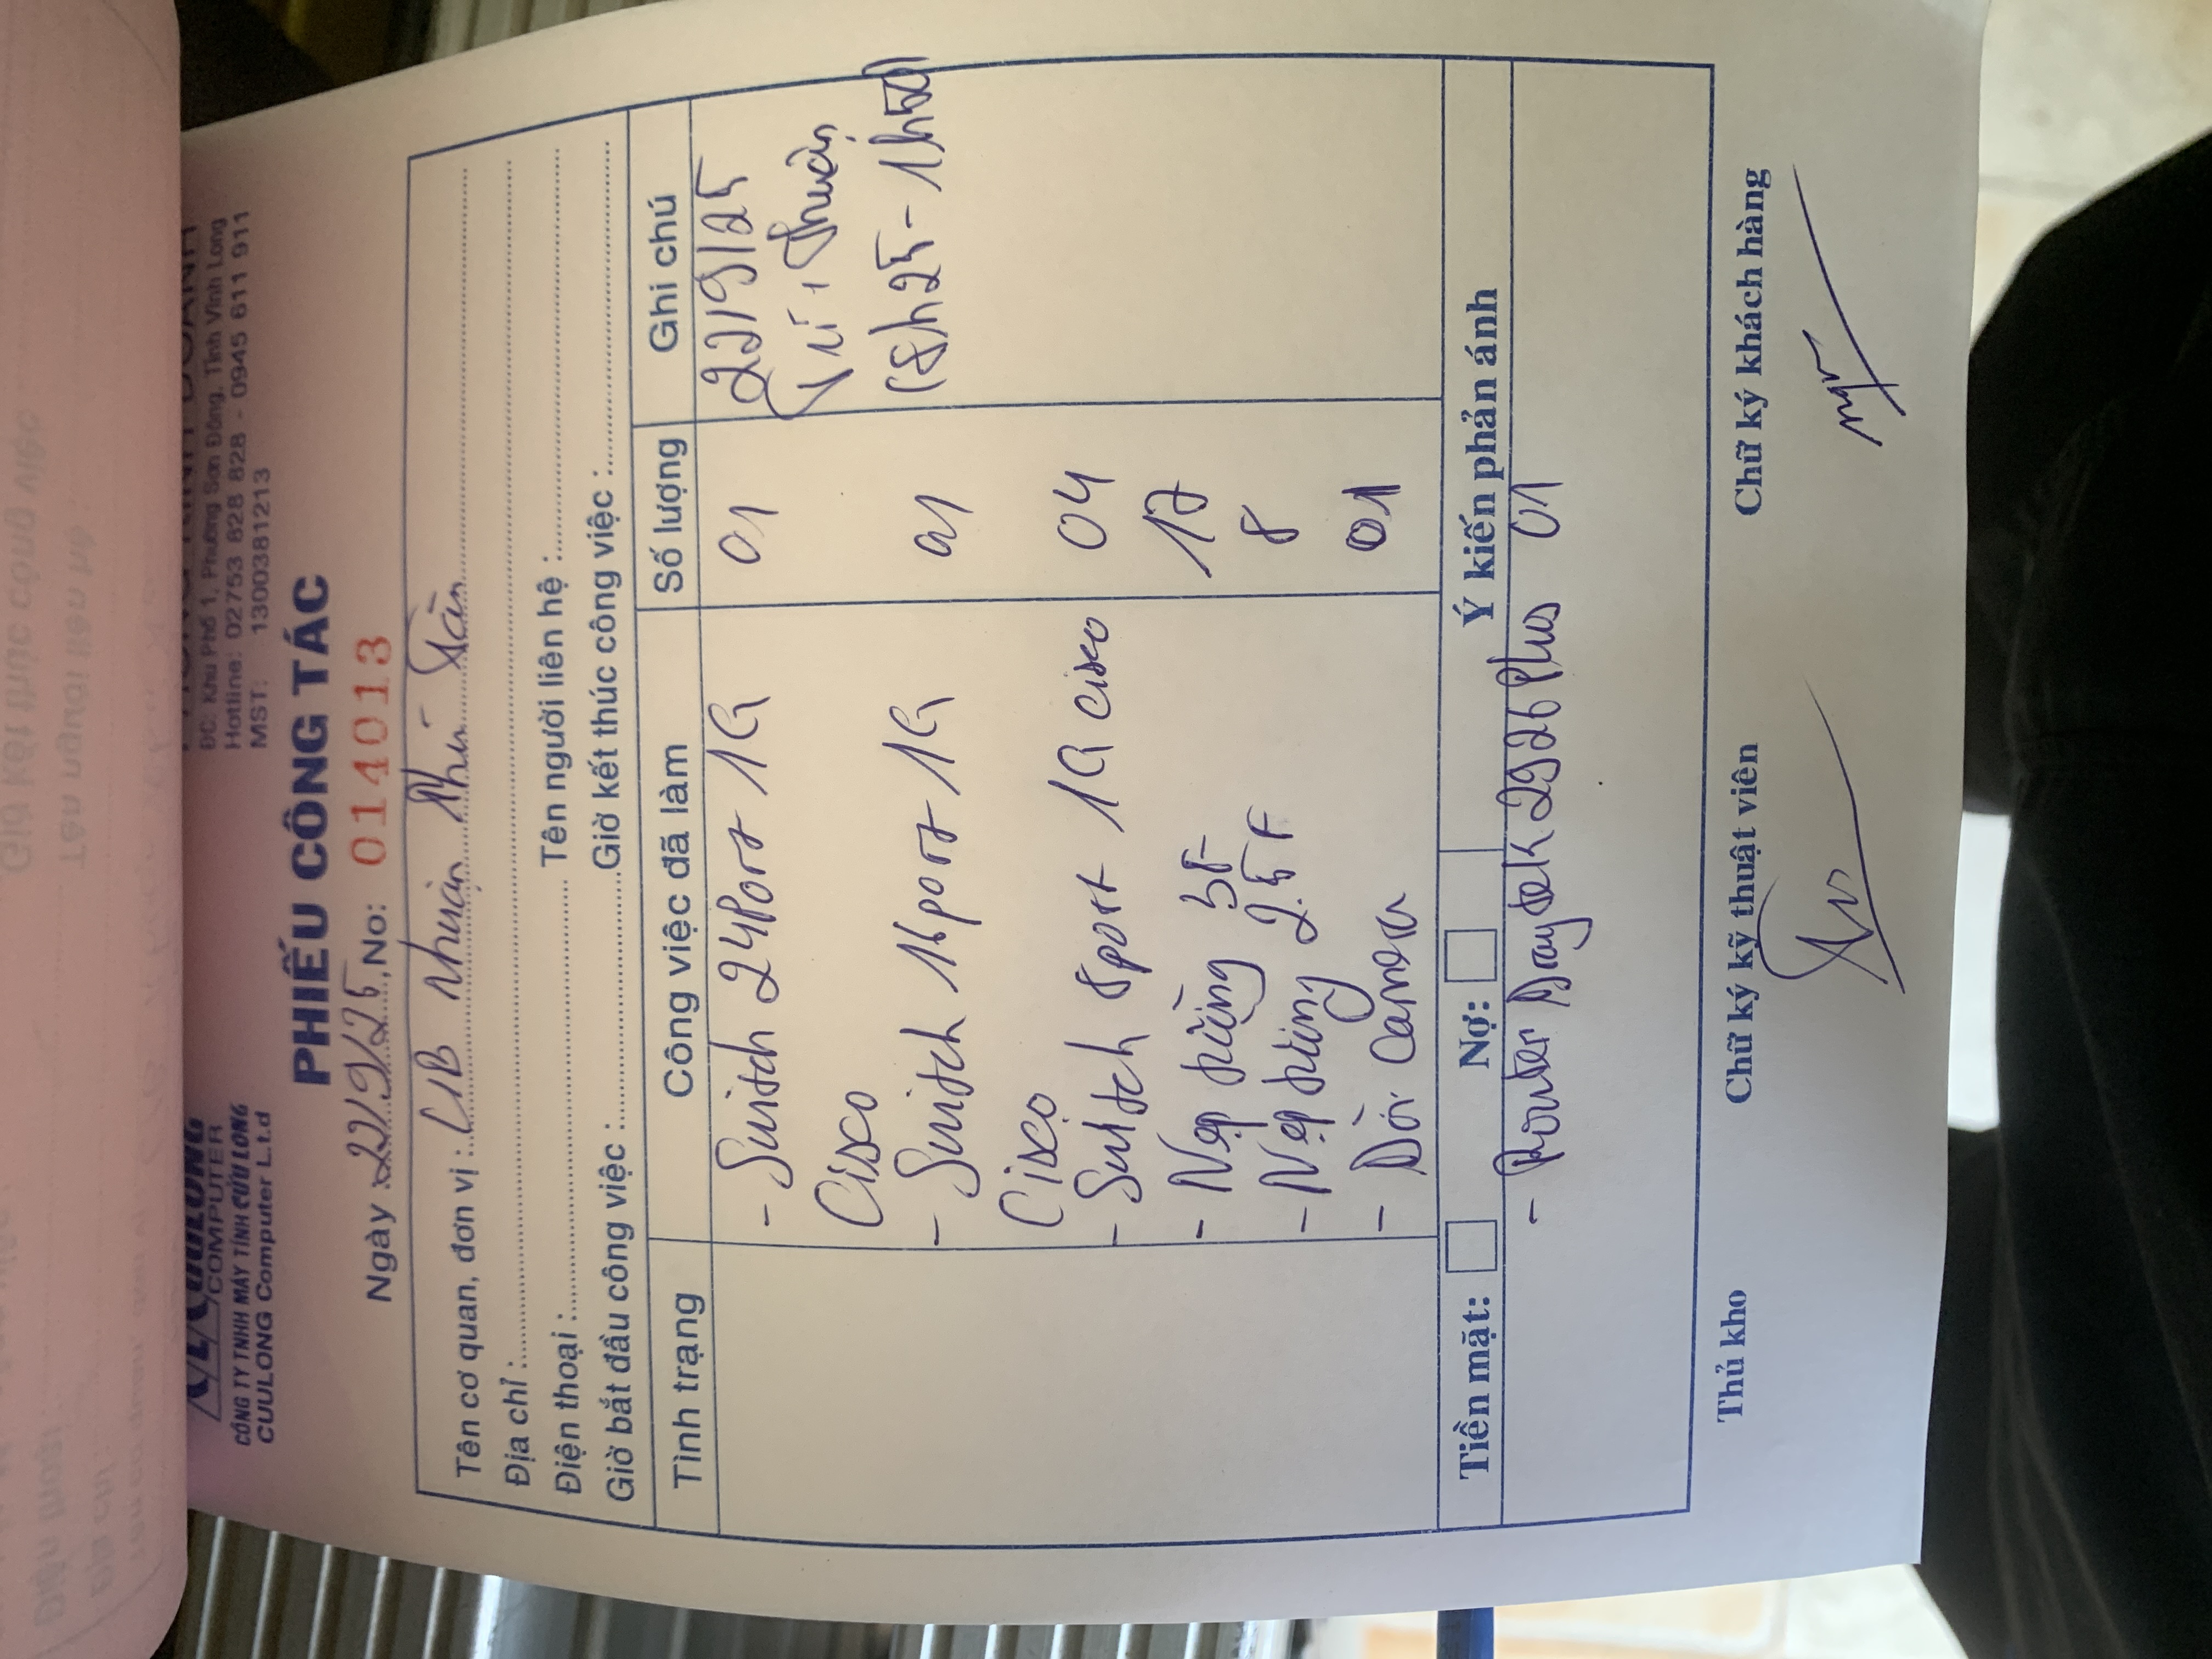 CUULONG
COMPUTER
CÔNG TY TNHH MÁY TÍNH CỬU LONG
CUULONG Computer L.t.d
ĐC: Khu Phố 1, Phường Sơn Đông, Tỉnh Vĩnh Long
Hotline: 02753 828 828 - 0945 611 911
MST: 1300381213
PHIẾU CÔNG TÁC
Ngày 22/9/25, No: 014013
Tên cơ quan, đơn vị : Nhuận Phú Tân
Địa chỉ :
Điện thoại : Tên người liên hệ :
Giờ bắt đầu công việc : Giờ kết thúc công việc :
Tình trạng Công việc đã làm Số lượng Ghi chú
- Switch 24Port 1G 01 22/9/25
Cisco (Vi + Thuận
- Switch 16port 1G 01 (8h25 - 1h50)
Cisco
- Switch 8port 1G Cisco 04
- Nẹp tường 3F 17
- Nẹp tường 2.5F 8
- Dời Camera 01
Tiền mặt: Nợ: Ý kiến phản ánh
- Router Draytek 2926 Plus 01
Thủ kho Chữ ký kỹ thuật viên Chữ ký khách hàng